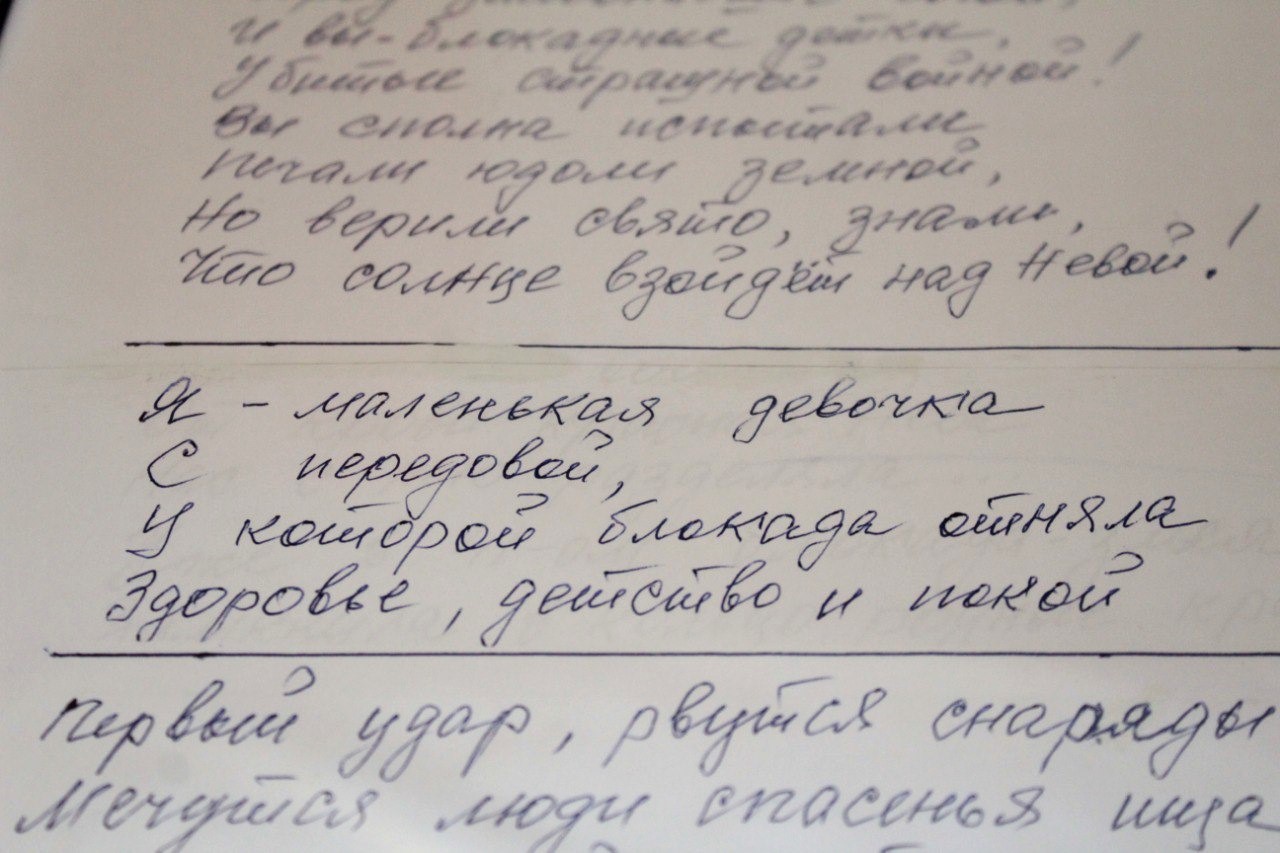 И вы-блокадные детки,
Убитые страшной войной!
Вы сполна испытали
Печали юдоли земной,
Но верили свято, знали,
Что солнце взойдёт над Невой!
Я - маленькая девочка
С передовой,
У которой блокада отняла
Здоровье, детство и покой
Первый удар, рвутся снаряды
Мечутся люди спасенья ища